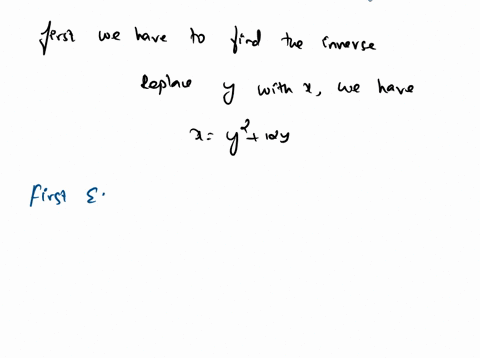 first we have to find the inverse
Replace y with x, we have
x = y² + 12y
First